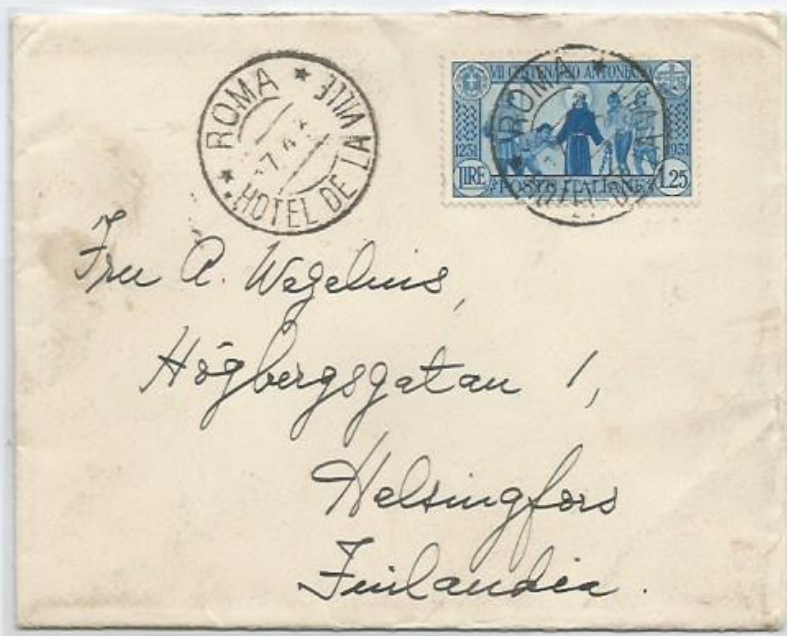 ROMA
HOTEL DE LA VILLE
VII CENTENARIO ANTONIANO
1231 1931
LIRE 1.25
POSTE ITALIANE
ROMA
Fru A. Wegelius,
Högbergsgatan 1,
Helsingfors
Finlandia.